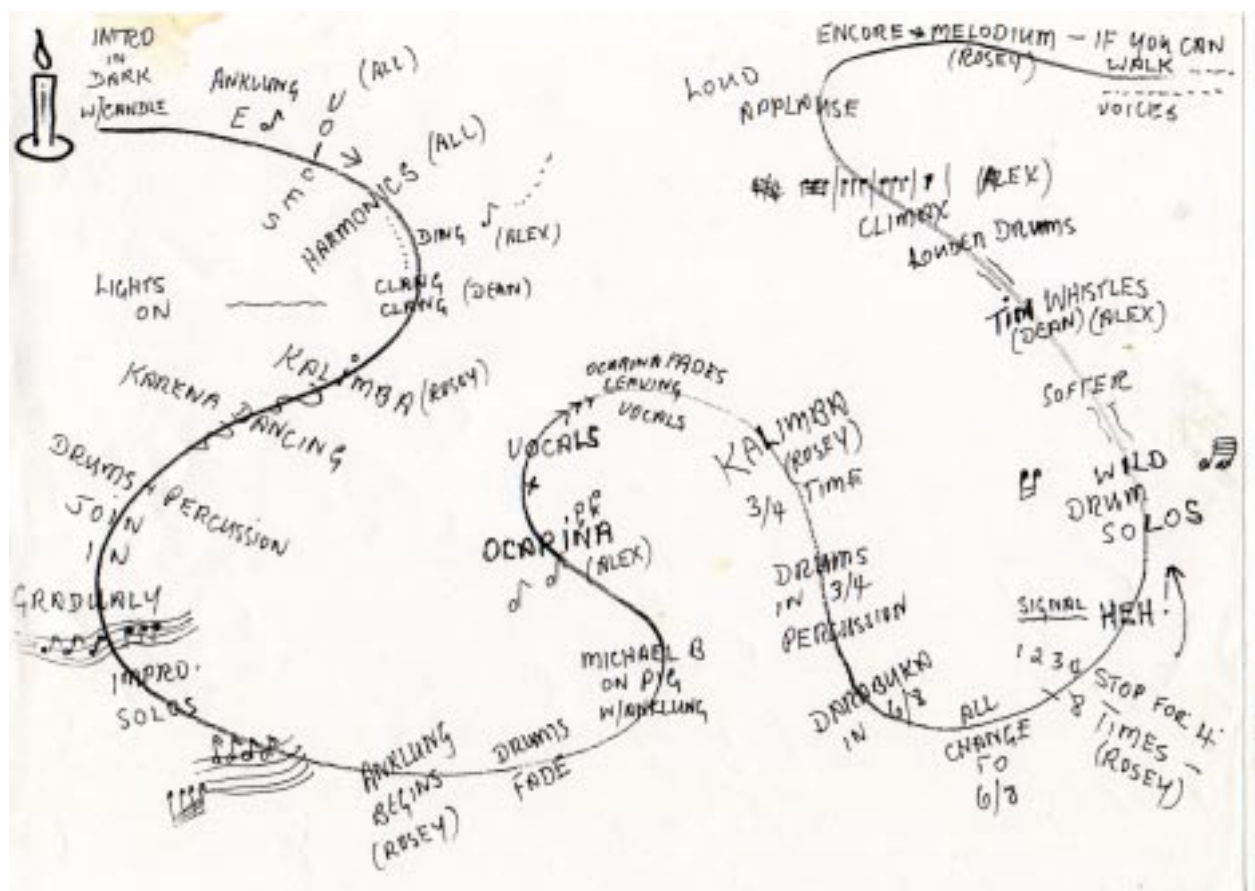 INTRO
IN
DARK
W/CANDLE
ANKLUNG
E
VOICES (ALL)
HARMONICS (ALL)
DING (ALEX)
CLANG
CLANG (DEAN)
LIGHTS
ON
KALIMBA (ROSEY)
KARENA DANCING
DRUMS + PERCUSSION
JOIN
IN
GRADUALY
IMPRO.
SOLOS
ANKLUNG
BEGINS
(ROSEY)
DRUMS
FADE
MICHAEL B
ON PIG
W/ANKLUNG
OCARINA
(ALEX)
VOCALS
OCARINA FADES
LEAVING
VOCALS
KALIMBA
(ROSEY)
3/4 TIME
DRUMS
IN 3/4
PERCUSSION
DARABUKA
IN 6/8
ALL
CHANGE
TO
6/8
1 2 3 4
8
STOP FOR 4
TIMES
(ROSEY)
SIGNAL HEH!
WILD
DRUM
SOLOS
SOFTER
TIM WHISTLES
(DEAN) (ALEX)
LOUDER DRUMS
CLIMAX
(ALEX)
LOUD
APPLAUSE
ENCORE → MELODIUM — IF YOU CAN
(ROSEY) WALK
VOICES